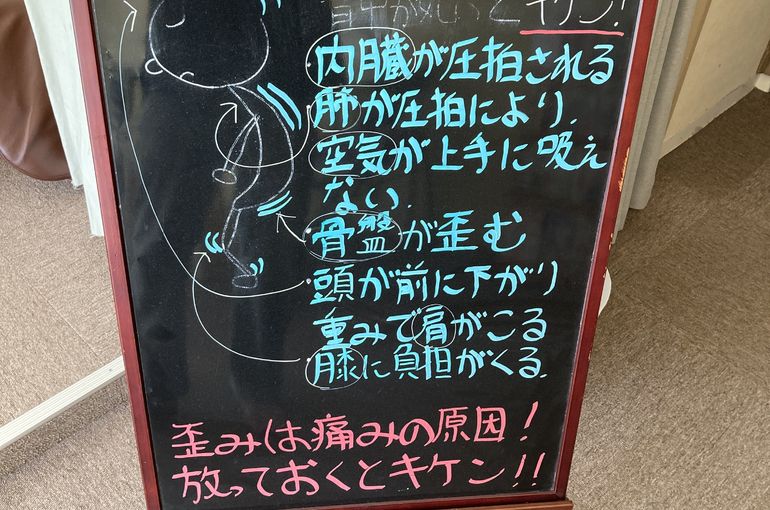 キケン!
・内臓が圧拍される
・肺が圧拍により、
・空気が上手に吸え
ない、
・骨盤が歪む
・頭が前に下がり
重みで肩がこる
・膝に負担がくる.
歪みは痛みの原因!
放っておくとキケン!!